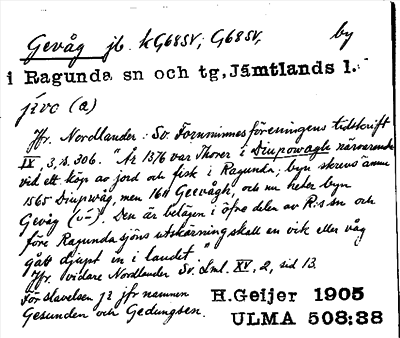 Gevåg jb. kG68SV; G68SV, by
i Ragunda sn och tg, Jämtlands l.
jǟvo (a)
Jfr. Nordlander: Sv. Fornminnesföreningens tidskrift
IX, 3, s. 306. "År 1376 var Thorer i Diupowagle närvarande
vid ett köp av jord och fisk i Ragunda; byn skrevs ännu
1565 Diupwåg, men 1611 Geevågh, och nu heter byn
Gevåg (v-). Den är belägen i öfre delen av R:s sn och
före Ragundasjöns utskärning skall en vik eller våg
gått djupt in i landet."
Jfr. vidare Nordlander Sv. Lml. XV, 2, sid 13.
Förstavelsen jr jfr namnen
Gesunden och Gedungsen.
H.Geijer 1905
ULMA 508:38